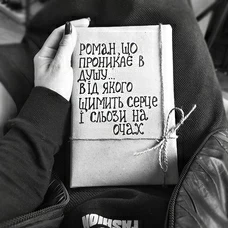 РОМАН, ЩО
ПРОНИКАЄ В
ДУШУ...
ВІД ЯКОГО
ЩИМИТЬ СЕРЦЕ
І СЛЬОЗИ НА
ОЧАХ